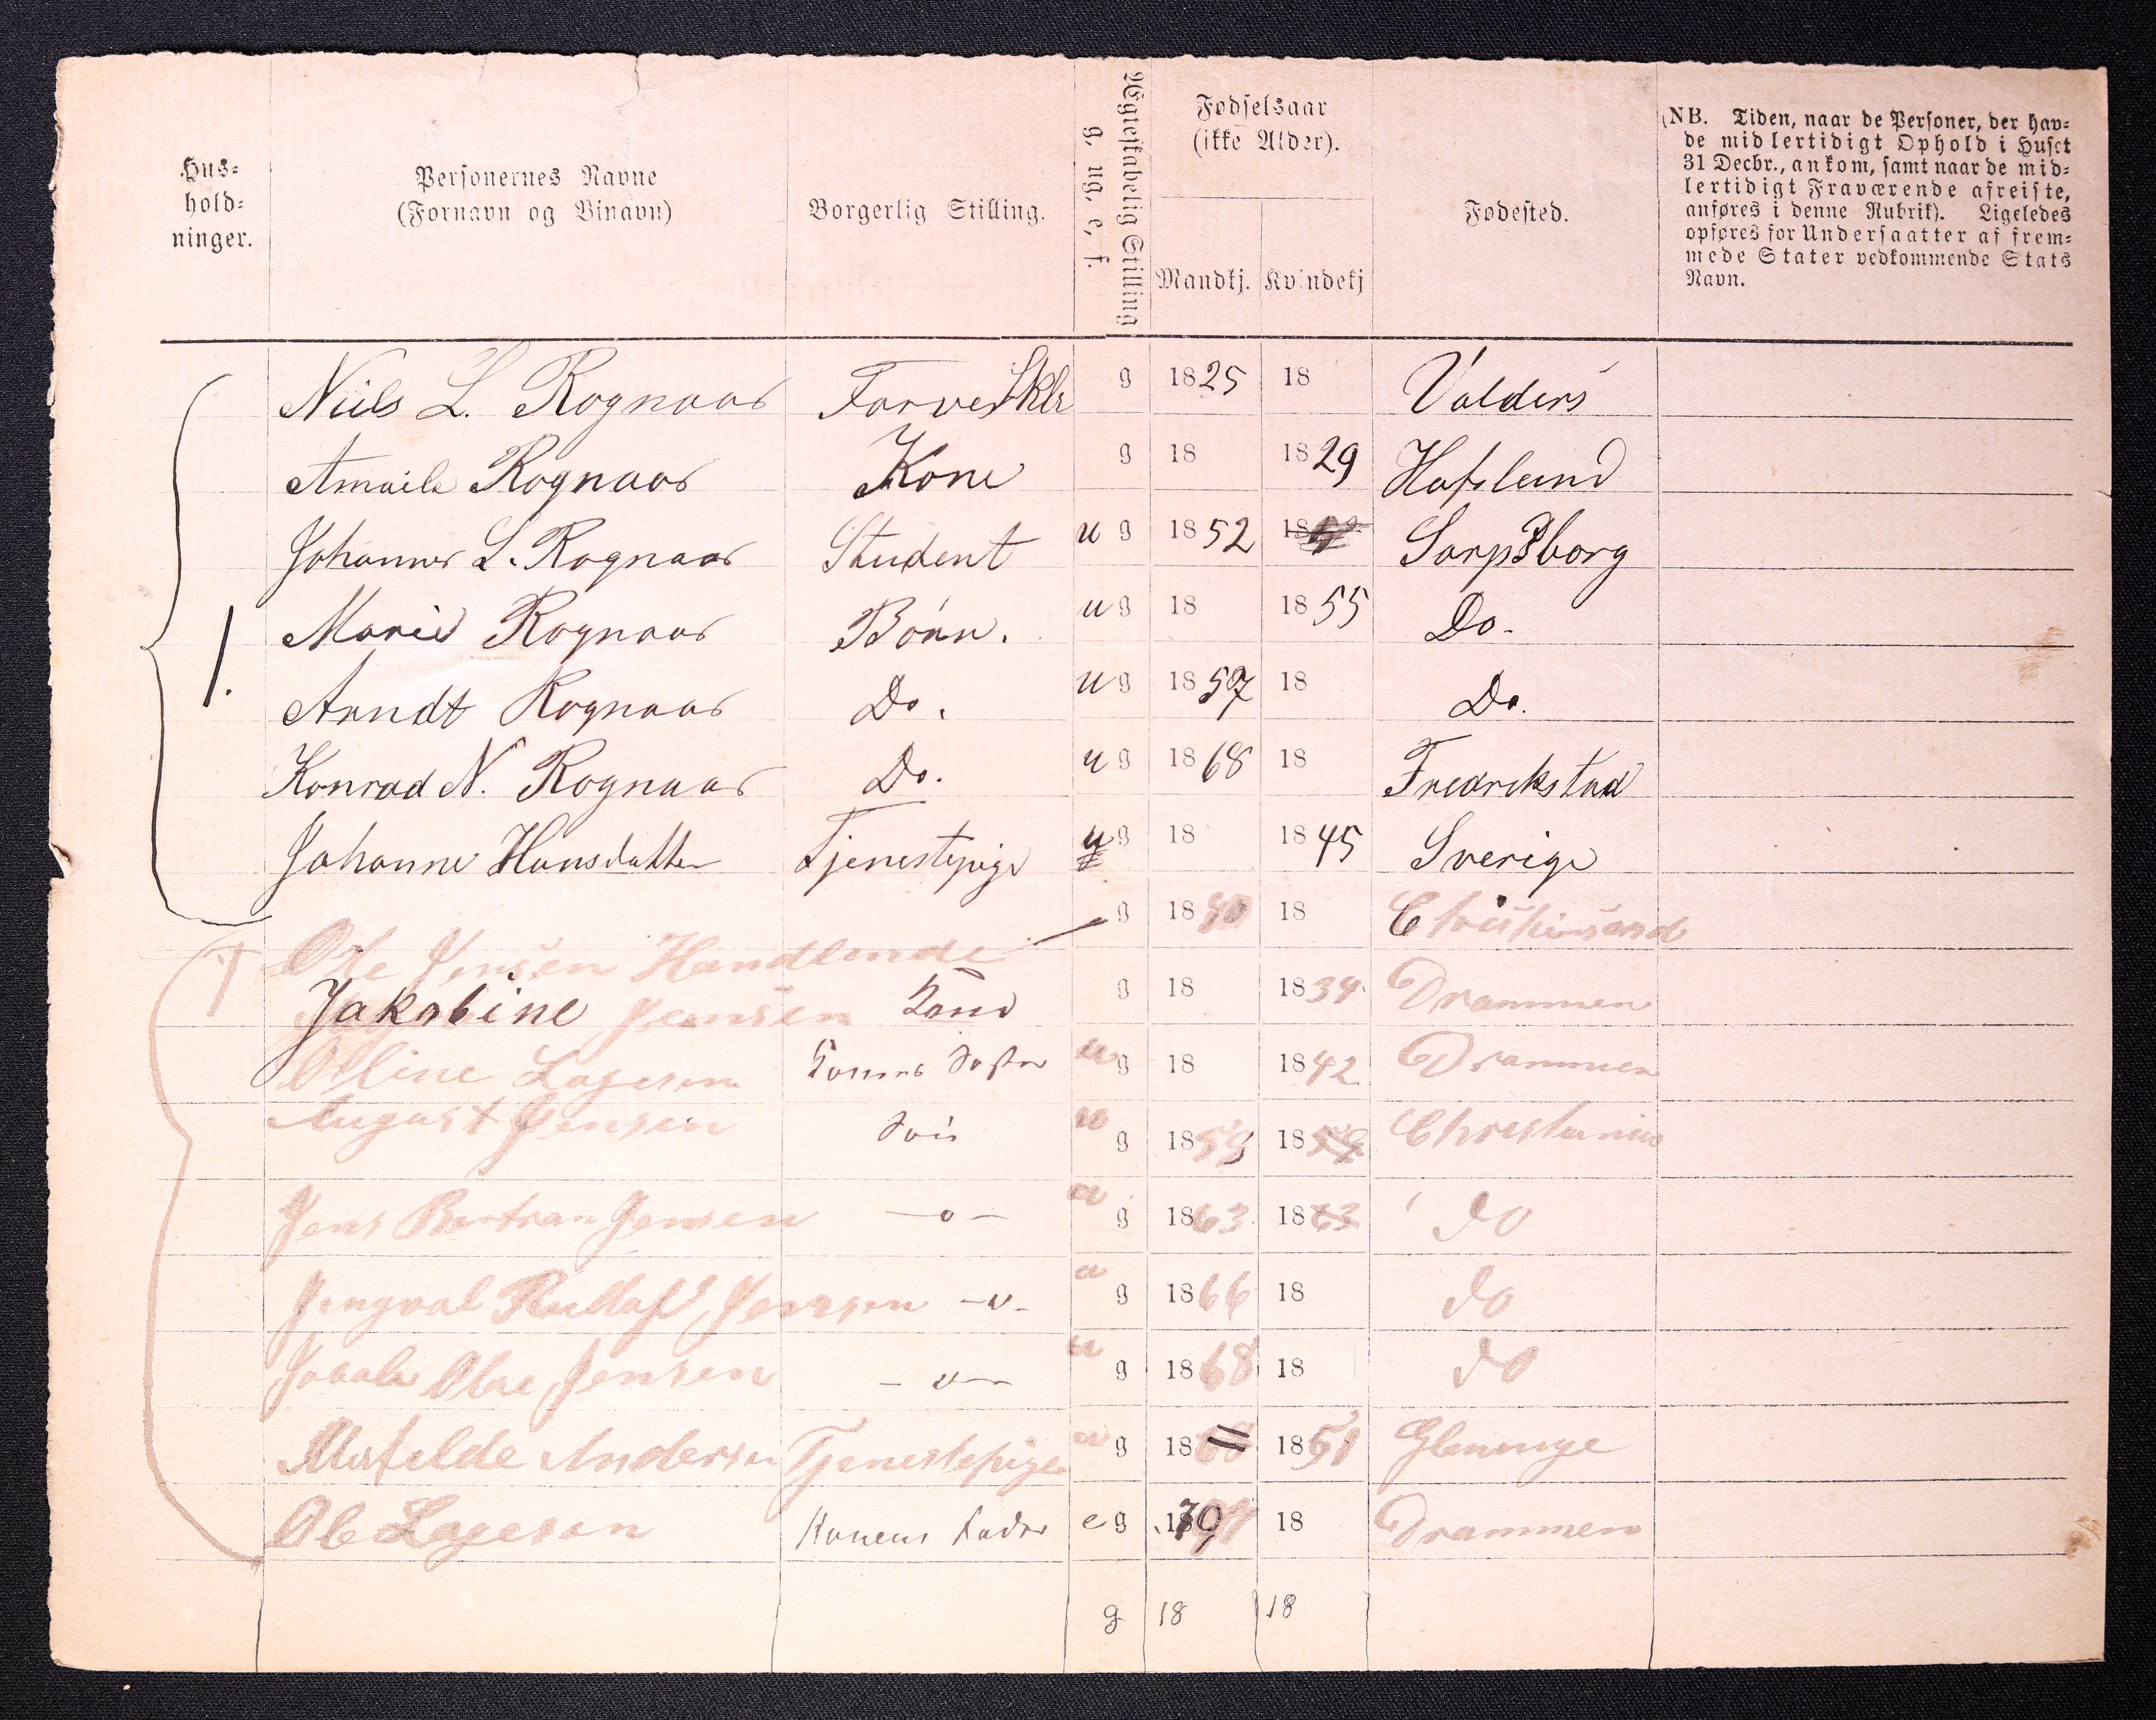 Hus-
hold-
ninger.
Personernes Navne
(Fornavn og Binavn)
Borgerlig Stilling.
Ægteskabelig Stilling
g, ug, e, f.
Fødselsaar
(ikke Alder).
Mandkj. Kvindekj
Fødested.
(NB. Tiden, naar de Personer, der hav-
de midlertidigt Ophold i Huset
31 Decbr., ankom, samt naar de mid-
lertidigt Fraværende afreiste,
anføres i denne Rubrik). Ligeledes
opføres for Undersaatter af frem-
mede Stater vedkommende Stats
Navn.
Niels L. Rognaas g 1825 18 Valders
Rognaas Kone g 18 1829 Hafslund
Johannes L. Rognaas Student u g 1852 18 Sarpsborg
1. Marie Rognaas Børn. u g 18 1855 Do.
Arndt Rognaas Do. u g 1857 18 Do.
Konrad N. Rognaas Do. u g 1868 18 Fredrikstad
Johanne Hansdatter Tjenestepige u g 18 1845 Sverige
Ole Jensen Handlende g 18 18 Christiansand
Jakobine Jensen Kone g 18 1834 Drammen
Oline Lagesen Konens Søster u g 18 1842 Drammen
August Jensen Søn u g 1859 18 Christiania
Jens Bertran Jensen -o- u g 1863 1863 do
Jensen -o- u g 1866 18 do
Jensen -o- u g 1868 18 do
Matilde Andersen Tjenestepige u g 18 1851 Glemmge
Ole Lagesen Konens Fader e g 1797 18 Drammen
g 18 18